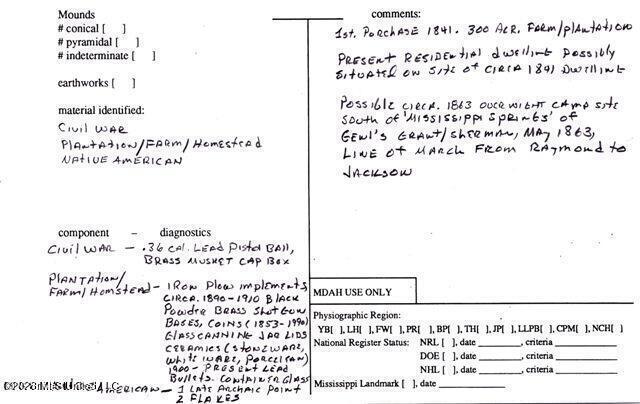 Mounds
# conical [ ]
# pyramidal [ ]
# indeterminate [ ]
earthworks [ ]
material identified:
Civil War
Plantation/Farm/Homestead
Native American
component – diagnostics
Civil War – .36 cal. Lead Pistol Ball,
Brass Musket Cap Box
Plantation/
Farm/Homstead – Iron Plow implements,
circa. 1890-1910 Black
Powder Brass Shotgun
Bases, Coins (1853-1990)
Glass canning Jar Lids
ceramics (stoneware,
whiteware, Porcelean)
1900 - Present Lead
Bullets. Container Glass
American – 1 Late Archaic Point
2 Flakes
comments:
1st. Porchase 1841. 300 Acr. Farm/plantation
Present Residential dwelling possibly
situated on site of circa 1841 Dwelling
Possible circa. 1863 overnight camp site
South of 'Mississippi Springs' of
Genl's Grant/Sherman, May 1863,
Line of March From Raymond to
Jackson
MDAH USE ONLY
Physiographic Region:
YB[ ], LH[ ], FW[ ], PR[ ], BP[ ], TH[ ], JP[ ], LLPB[ ], CPM[ ], NCH[ ]
National Register Status: NRL [ ], date ________, criteria ________
DOE [ ], date ________, criteria ________
NHL [ ], date ________, criteria ________
Mississippi Landmark [ ], date ________